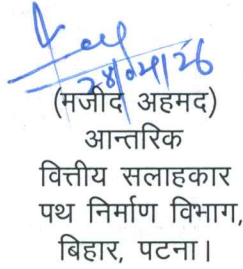 28/04/26
(मजीद अहमद)
आन्तरिक
वित्तीय सलाहकार
पथ निर्माण विभाग,
बिहार, पटना।